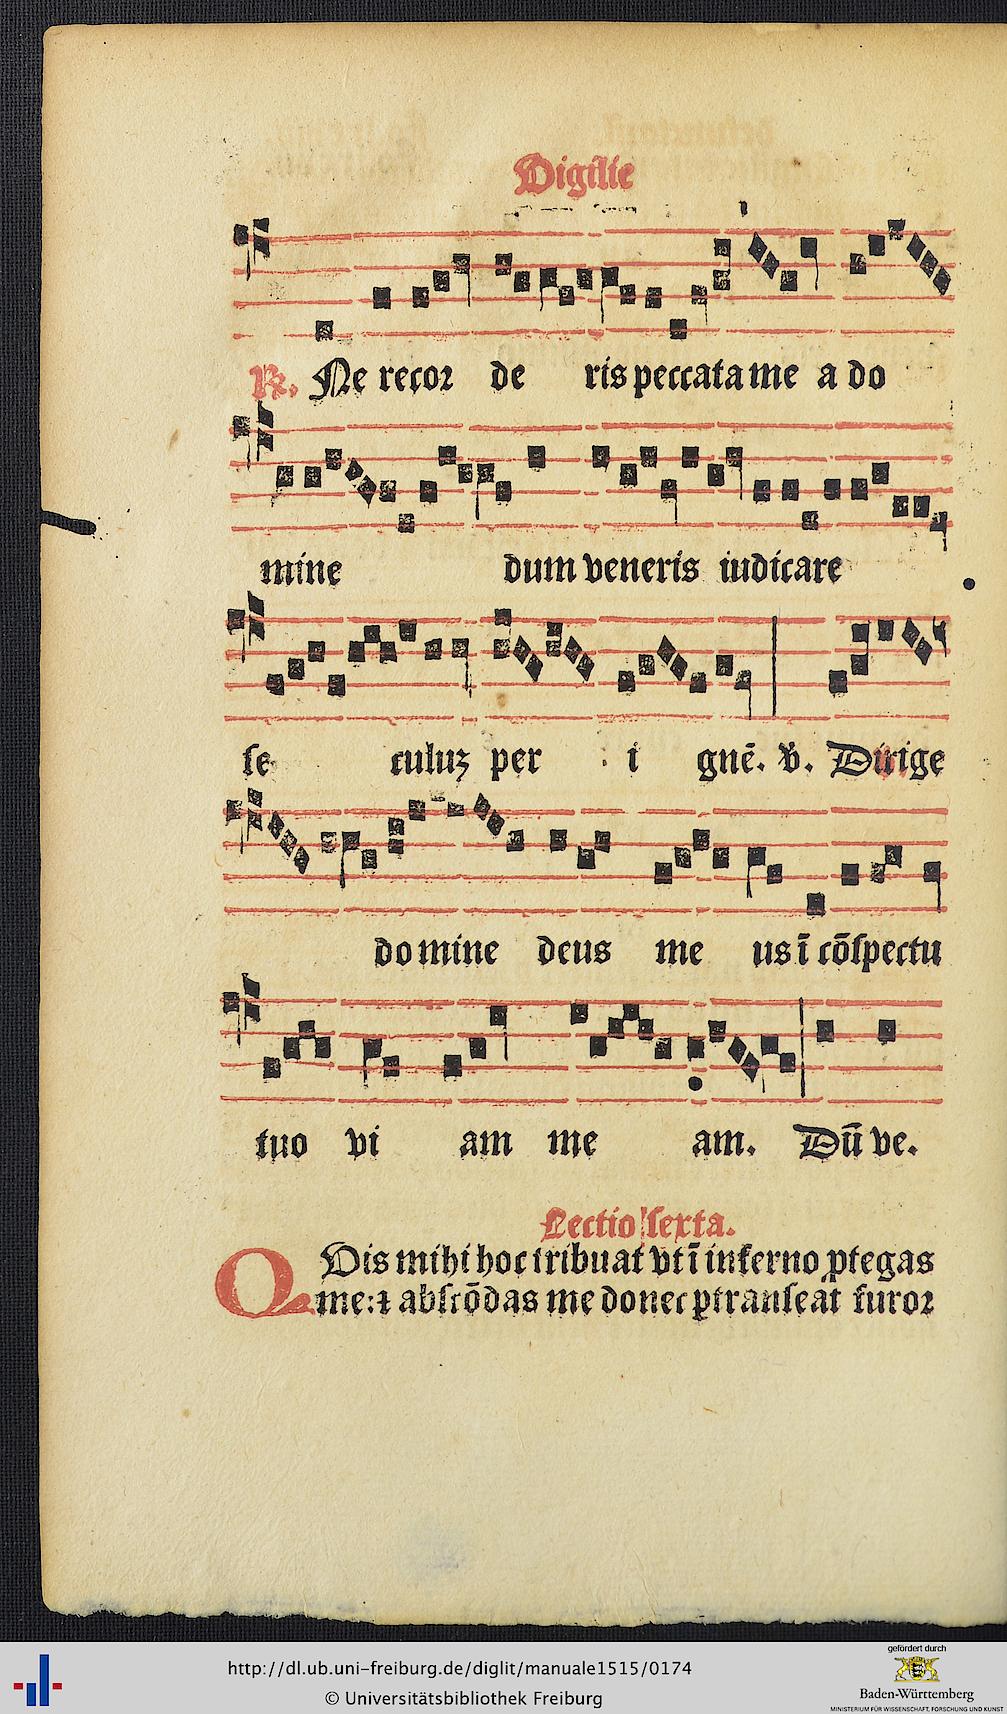 Vigilie
R. Ne recor de ris peccata me a do
mine dum veneris iudicare
se culuʒ per i gnē. v̄. Dirige
do mine deus me us ī cōspectu
tuo vi am me am. Dū ve.
Lectio sexta.
QVis mihi hoc tribuat vt ī inferno ꝓtegas
me: ⁊ abscōdas me donec ꝑtranseat furor
http://dl.ub.uni-freiburg.de/diglit/manuale1515/0174
© Universitätsbibliothek Freiburg
gefördert durch
Baden-Württemberg
MINISTERIUM FÜR WISSENSCHAFT, FORSCHUNG UND KUNST